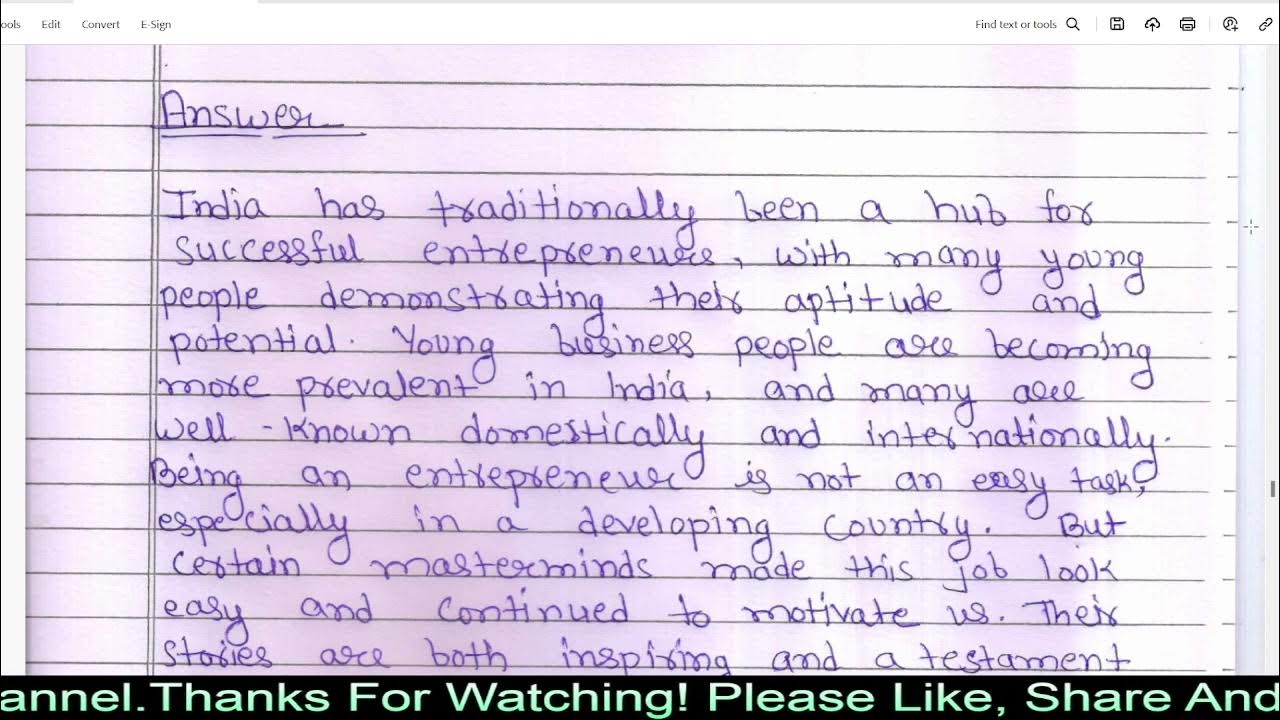 ools Edit Convert E-Sign Find text or tools
Answer
India has traditionally been a hub for
successful entrepreneurs, with many young
people demonstrating their aptitude and
potential. Young business people are becoming
more prevalent in India, and many are
well-known domestically and internationally.
Being an entrepreneur is not an easy task,
especially in a developing country. But
certain masterminds made this job look
easy and continued to motivate us. Their
stories are both inspiring and a testament
annel.Thanks For Watching! Please Like, Share And